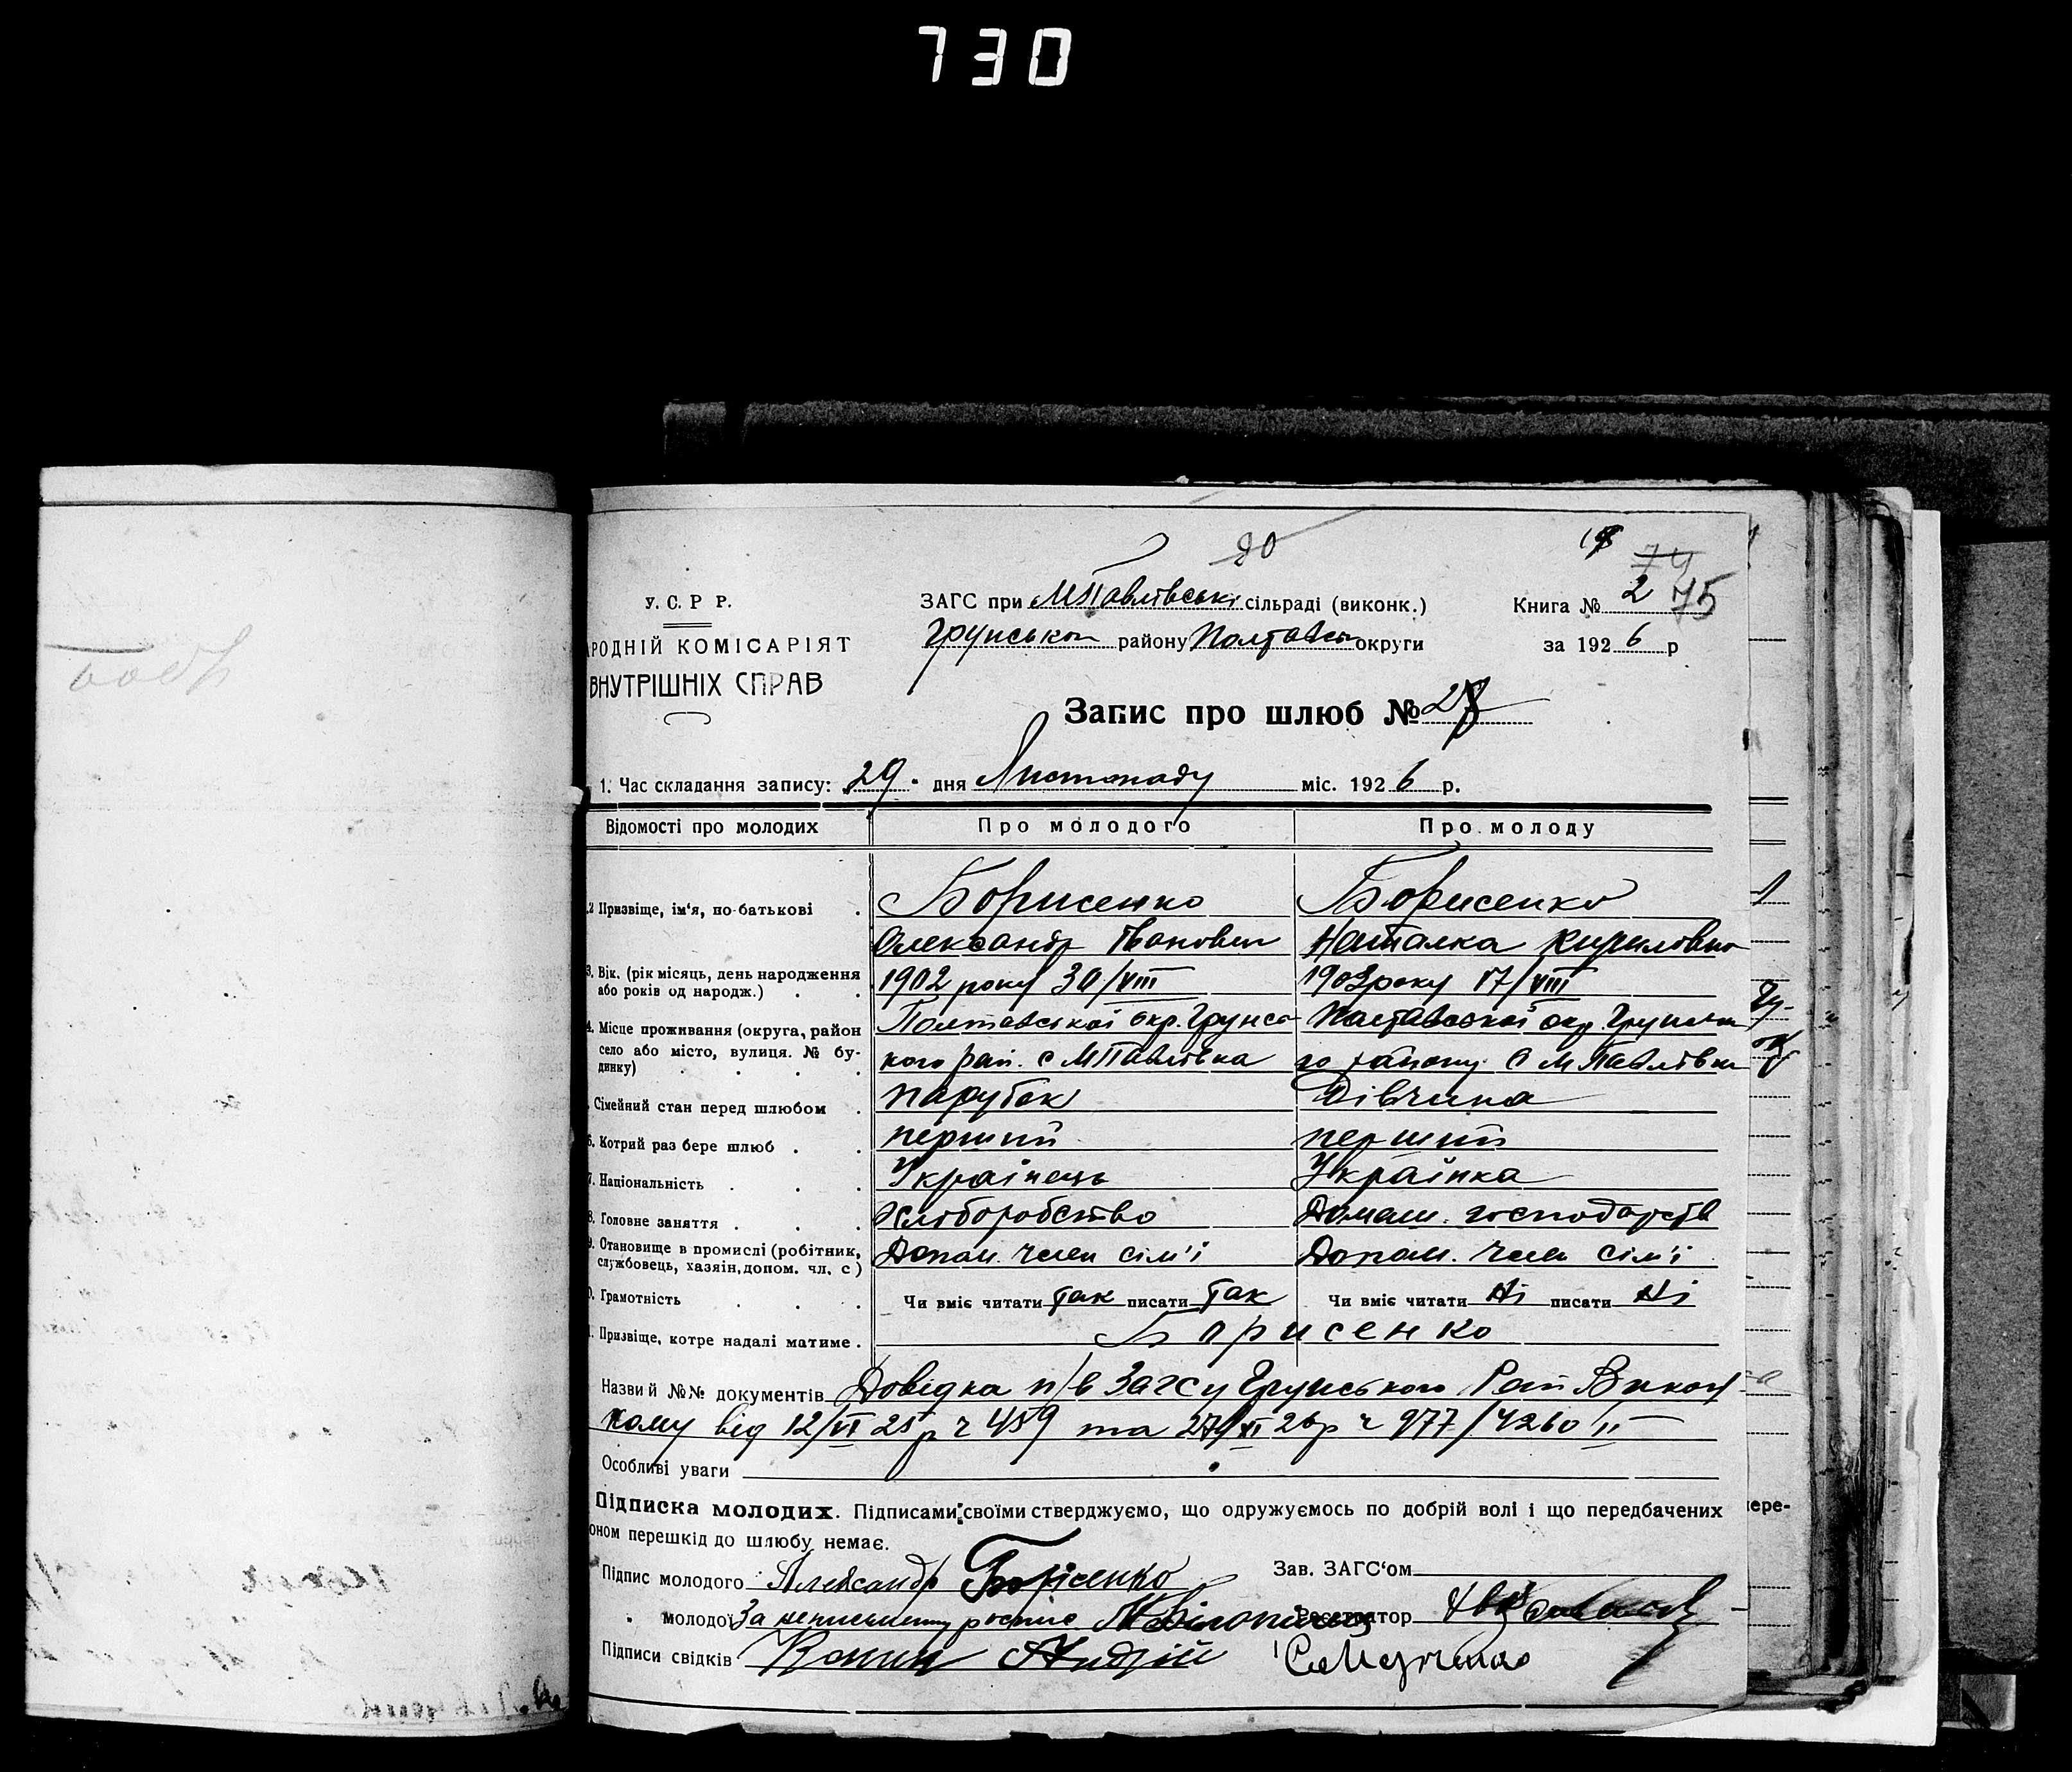 730
20
74
75
У. С. Р. Р.
ЗАГС при МПавлівські сільраді (виконк.)
Книга № 2
РОДНІЙ КОМІСАРІЯТ
Грунської району Полтавськ округи
за 1926 р
ВНУТРІШНІХ СПРАВ
Запис про шлюб №
1. Час складання запису: 29 дня Листопаду міс. 1926 р.
Відомості про молодих
Про молодого
Про молоду
2 Призвіще, ім'я, по-батькові
Борисенко
Борисенко
Олександр Іванович
Наталка Кириловна
3. Вік. (рік місяць, день народження
або років од народж.)
1902 року 30/VIII
року 17/VIII
4. Місце проживання (округа, район
село або місто, вулиця. № бу-
динку)
Полтавської окр. Грунсь
Полтавської окр Грунсько
кого рай. с МПавлівка
го району С М Павлівка
Сімейний стан перед шлюбом
парубок
Дівчина
6. Котрий раз бере шлюб
перший
перший
7. Національність
Українець
Українка
8. Головне заняття
Хліборобство
Домаш. господарств
9. Становище в промислі (робітник,
службовець, хазяін, допом. чл. с)
Допом. член сім'і
Допом. член сім'і
0. Грамотність
Чи вміє читати так писати так
Чи вміє читати Ні писати Ні
1. Призвіще, котре надалі матиме
Борисенко
Назви й №№ документів Довідка п/в Загсу Грунського Рай Викон
кому від 12/VI 25 р ч 459 та 27/XI 26р ч 977/4260
Особливі уваги
Підписка молодих. Підписами своїми стверджуємо, що одружуємось по добрій волі і що передбачених
оном перешкід до шлюбу немає.
Підпис молодого Александр Борісенко
Зав. ЗАГС'ом
молодої За неписьменну роспис
Реєстратор
Підписи свідків Андрій